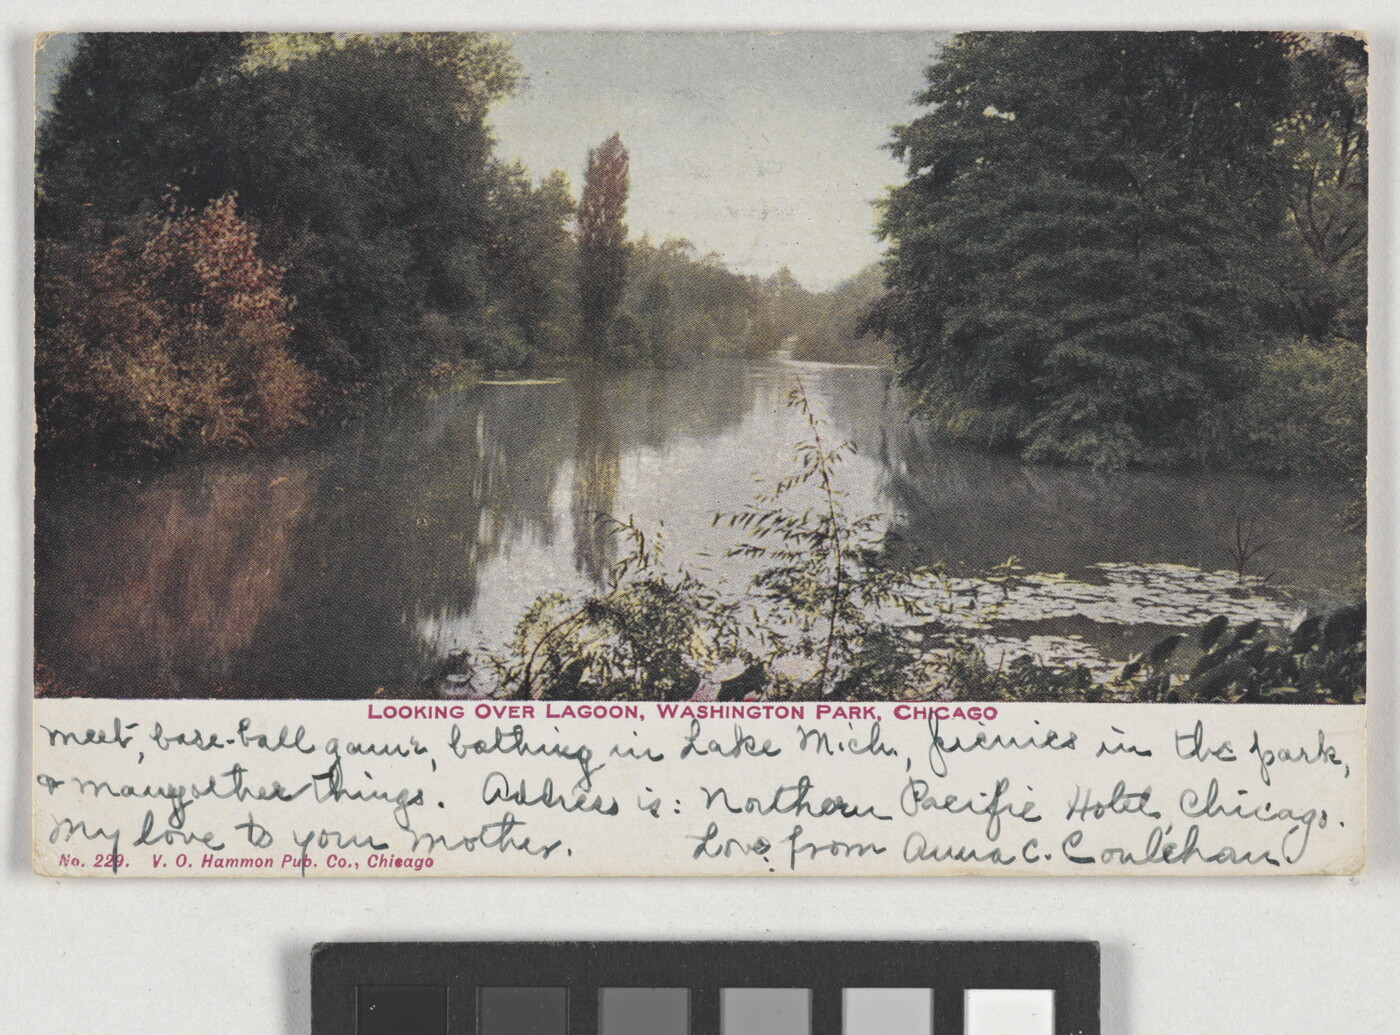 LOOKING OVER LAGOON, WASHINGTON PARK, CHICAGO
meet, base-ball game, bathing in Lake Mich., picnics in the park,
& many other things. Address is: Northern Pacific Hotel, Chicago.
My love to your mother. Love from Anna C.
No. 229. V. O. Hammon Pub. Co., Chicago